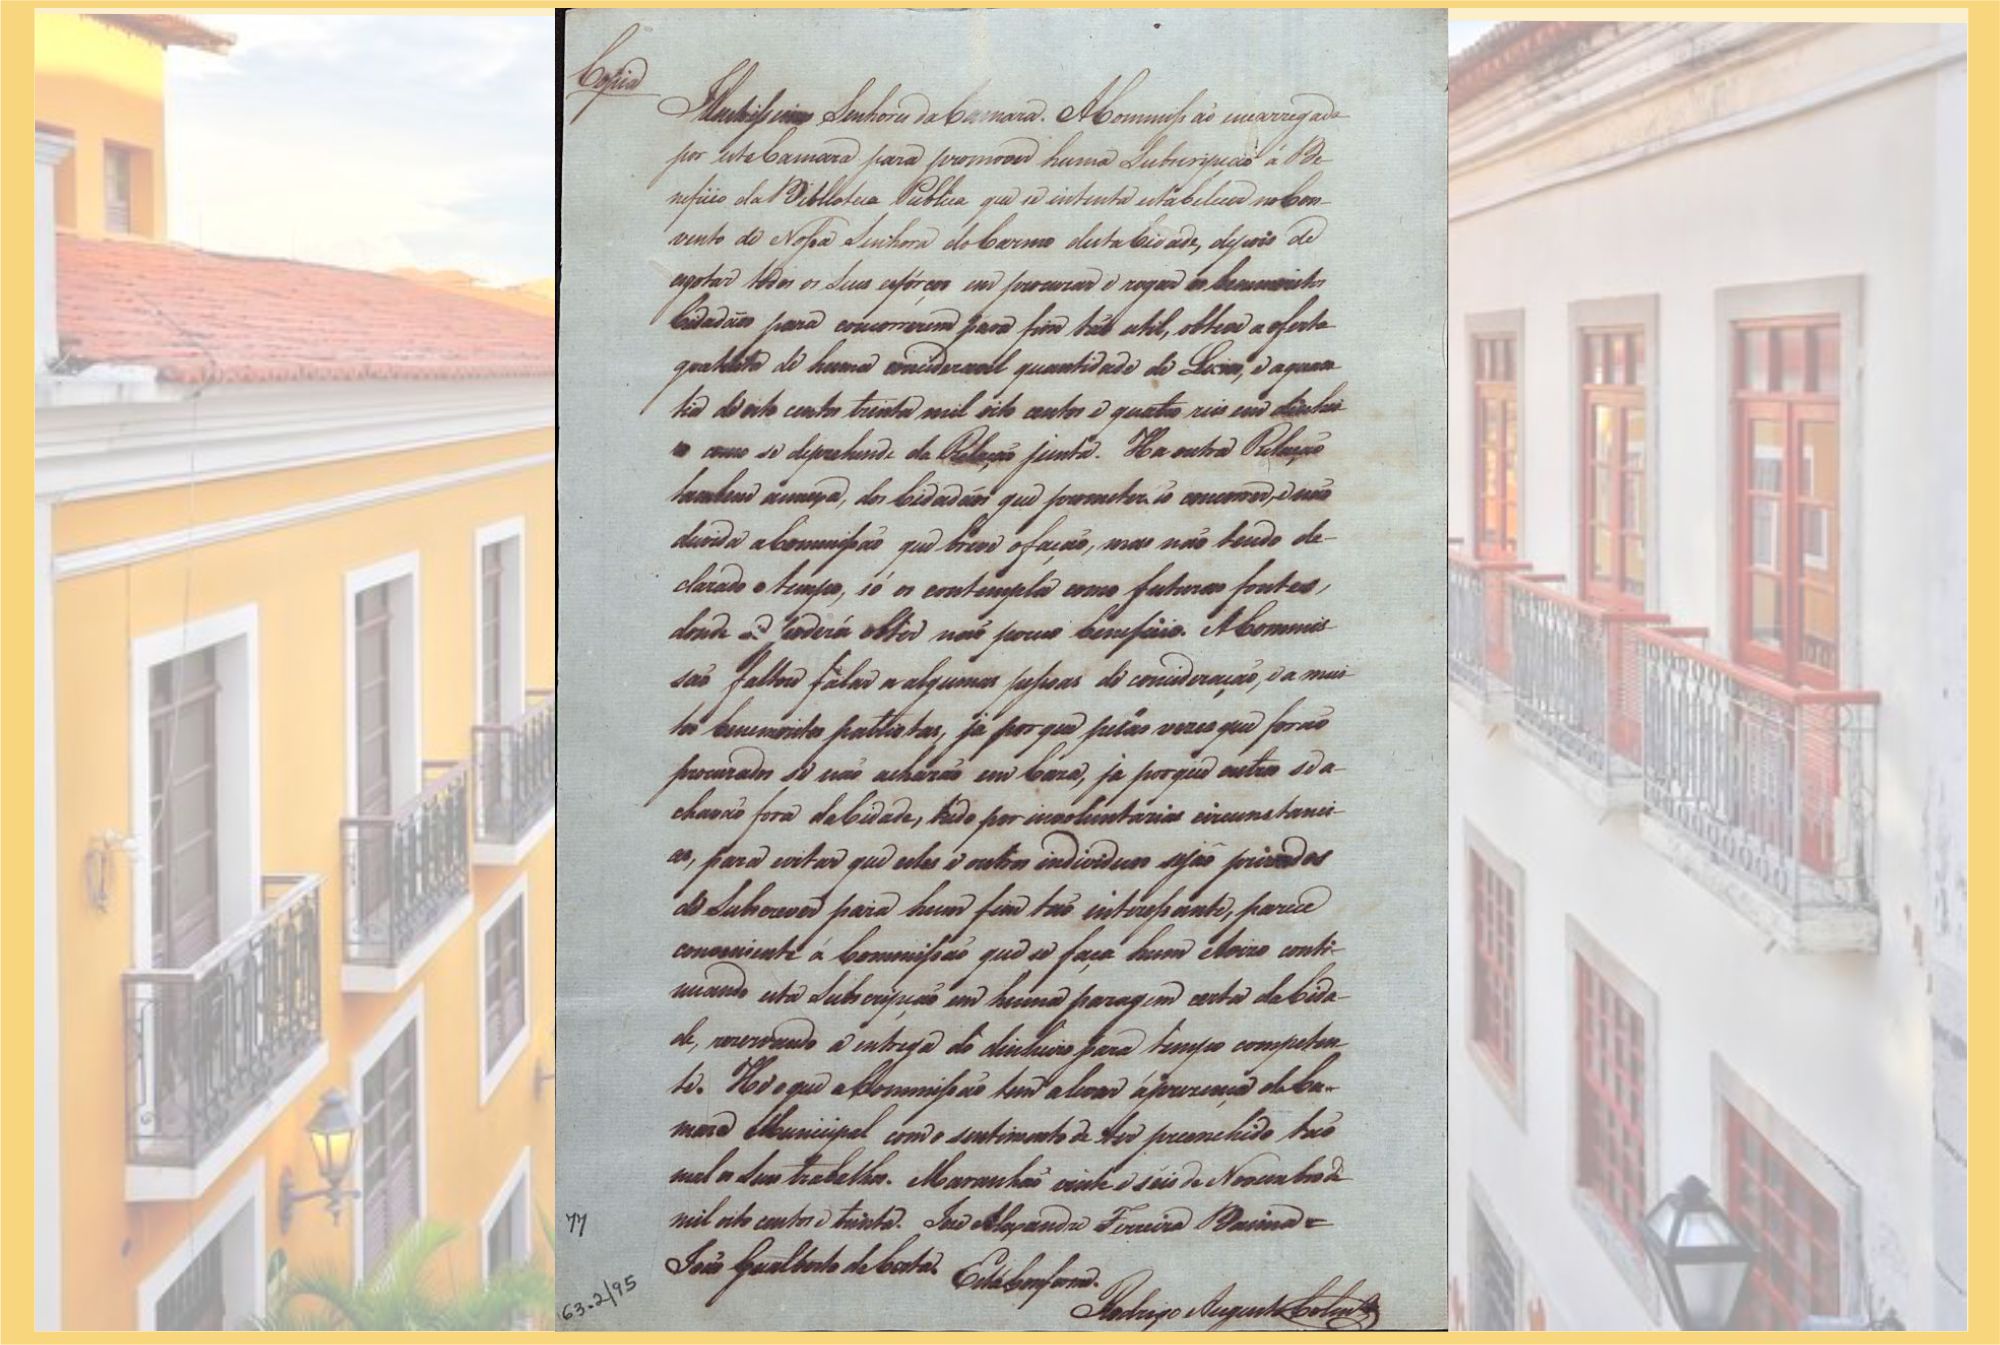 Copia
Illustrissimos Senhores da Camara. A Commissão encarregada
por esta Camara para promover huma Subscripção á Be-
neficio da Biblioteca Publica que se intenta estabelecer no Con-
vento de Nossa Senhora do Carmo desta Cidade, depois de
esgotar todos os seus esforços em procurar e rogar os benemeritos
Cidadãos para concorrerem para fim tão util, obteve a oferta
gratuita de huma consideravel quantidade de Livros, e a quan-
tia de oito centos trinta mil oito centos e quatro reis em dinhei-
ro como se deprehende da Relação junta. Ha outra Relação
tambem annexa, dos Cidadãos que prometterão concorrer, e não
duvida a Commissão que breve o fação, mas não tendo de-
clarado o tempo, só os contempla como futuras fontes,
donde se poderá obter não pouco beneficio. A Commis-
são faltou fallar a algumas pessoas de consideração, e a mui-
tos benemeritos patriotas, já porque pelas vezes que forão
procurados se não acharão em Caza, já porque outros se a-
chavão fora da Cidade, tudo por involuntarias circunstanci-
as, para evitar que estes e outros individuos sejão privados
de Subscrever para hum fim tão interessante, parece
conveniente á Commissão que se faça hum Aviso conti-
nuando esta Subscripção em huma paragem certa da Cida-
de, reservando a entrega do dinheiro para tempo competen-
te. He o que a Commissão tem a levar á prezença da Ca-
mara Municipal com o sentimento de ter preenchido tão
mal os seus trabalhos. Maranhão vinte e seis de Novembro de
mil oito centos e trinta. José Alexandre Ferreira Baima =
João Gualberto da Costa. Está Conforme.
Rodrigo Augusto
77
63-2/95